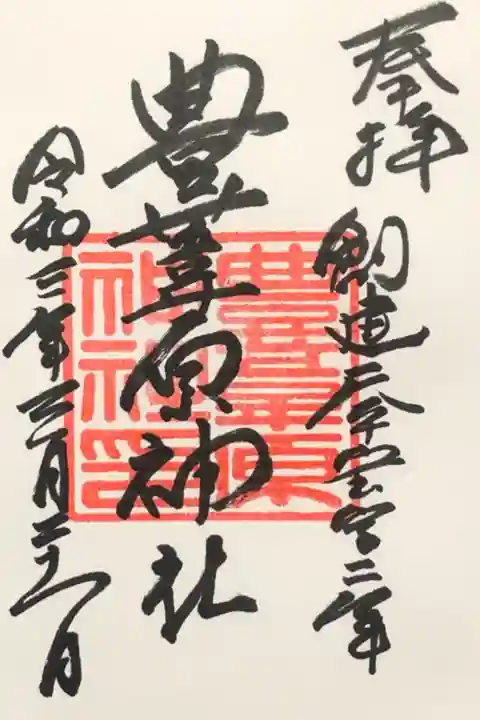 奉拝
創建天平宝字二年
豊葦原神社
豊葦原神社印
令和三年三月二十日